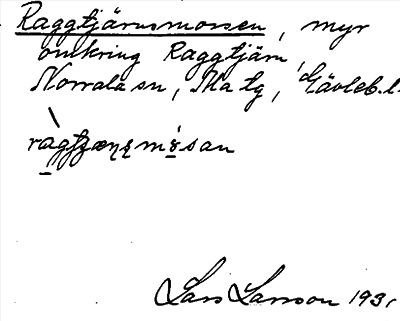 Raggtjärnsmossen, myr
omkring Raggtjärn,
Norrala sn, Ma tg, Gävleb. l.
Lars Larsson 193